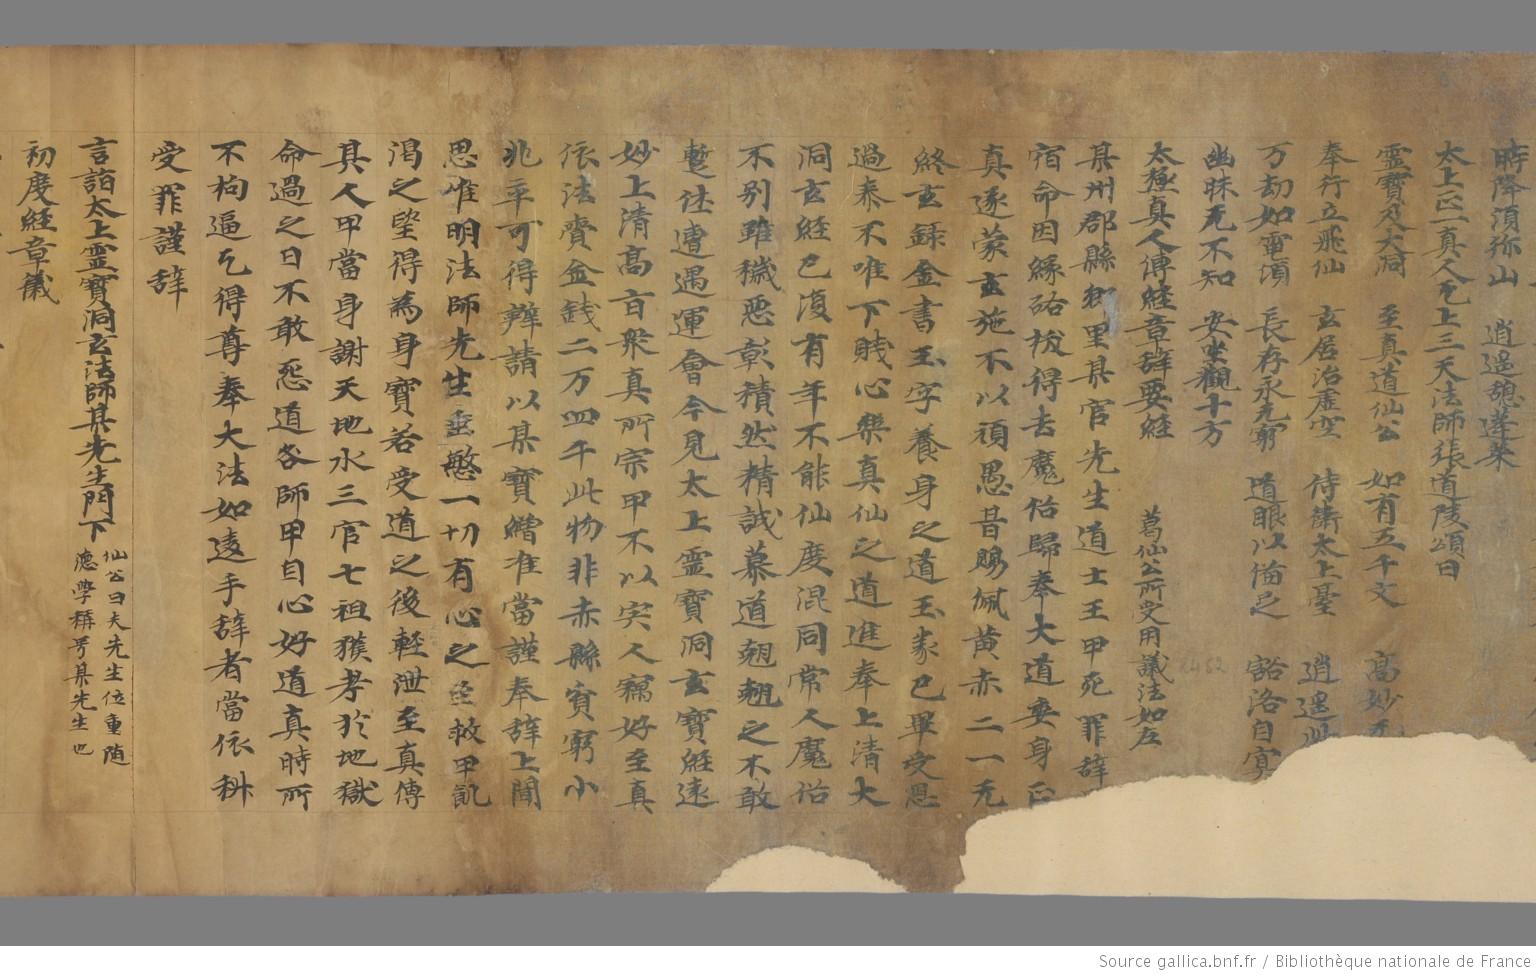 時降湏弥山　逍遥憩蓬莱
太上正一真人无上三天法師張道陵頌曰
靈寶及大洞　至真道仙公　如有五千文　高妙无
奉行立飛仙　玄居治虚空　侍衛太上臺　逍遥
万劫如電頃　長存永无窮　道眼以備足　豁落自
幽昧无不知　安坐觀十方
太極真人傳經章辞要經　葛仙公所受用議法如左
某州郡縣鄉里某官先生道士王甲死罪辞
宿命因緣 拔得去魔俗歸奉大道要身正
真遂蒙玄施不以頑愚昔賜佩黄赤二一无
終玄録金書玉字養身之道玉 已畢受恩
過泰不唯下賎心樂真仙之道進奉上清大
洞玄經已復有年不能仙度混同常人魔俗
不别雖穢惡彰積然精誠慕道翹翹之不敢
蹔 遭遇運會今見太上靈寶洞玄寶經逺
妙上清高百衆真所宗甲不以 人竊好至真
依法賷金錢二万四千此物非赤縣 貧窮小
兆卒可得辦請以某寶繒准當謹奉辞上聞
思惟明法師先生垂慜一切有心之 救甲飢
渇之望得為身寶若受道之後輕泄至真傳
其人甲當身謝天地水三官七祖 考於地獄
命過之日不敢怨道咎師甲自心好道真時所
不拘逼乞得尊奉大法如逺手辞者當依科
受罪謹辞
言詣太上靈寶洞玄法師某先生門下 仙公曰夫先生位重随
德學稱号某先生也
初度經章儀
Source gallica.bnf.fr / Bibliothèque nationale de France